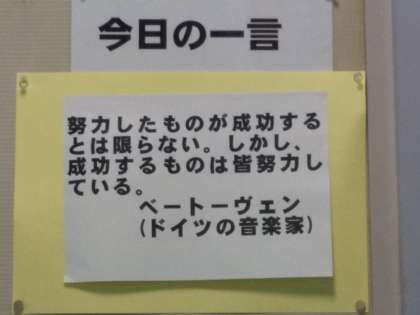 今日の一言
努力したものが成功する
とは限らない。しかし、
成功するものは皆努力し
ている。
ベートーヴェン
(ドイツの音楽家)